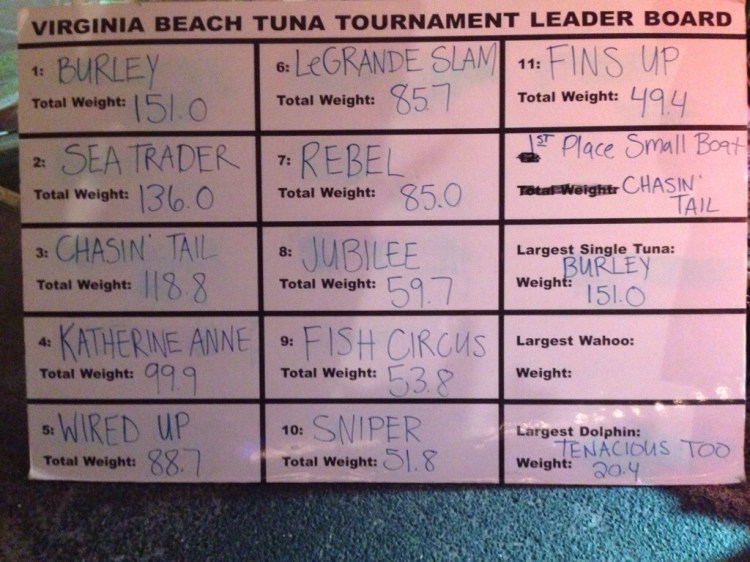 VIRGINIA BEACH TUNA TOURNAMENT LEADER BOARD
1: BURLEY
Total Weight: 151.0
2: SEA TRADER
Total Weight: 136.0
3: CHASIN' TAIL
Total Weight: 118.8
4: KATHERINE ANNE
Total Weight: 99.9
5: WIRED UP
Total Weight: 88.7
6: LeGRANDE SLAM
Total Weight: 85.7
7: REBEL
Total Weight: 85.0
8: JUBILEE
Total Weight: 59.7
9: FISH CIRCUS
Total Weight: 53.8
10: SNIPER
Total Weight: 51.8
11: FINS UP
Total Weight: 49.4
1ST Place Small Boat
Total Weight: CHASIN'
TAIL
Largest Single Tuna:
BURLEY
Weight: 151.0
Largest Wahoo:
Weight:
Largest Dolphin:
TENACIOUS TOO
Weight: 20.4